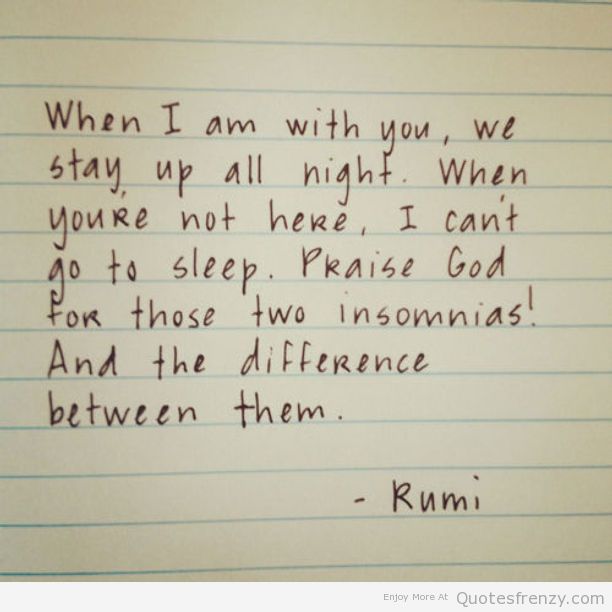 When I am with you, we
stay up all night. When
you're not here, I can't
go to sleep. Praise God
for those two insomnias!
And the difference
between them.
- Rumi
Enjoy More At Quotesfrenzy.com